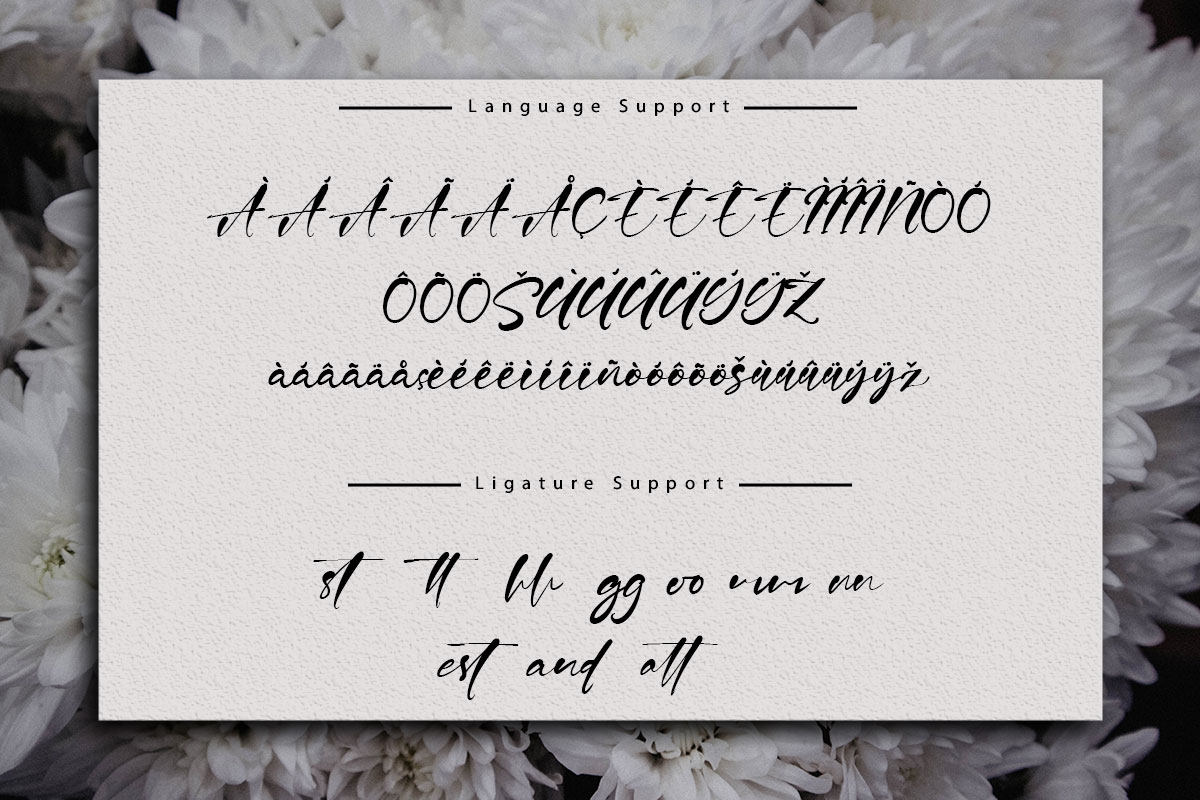 Language Support
ÀÁÂÃÄÅÇÈÉÊËÌÍÎÏÑÒÓ
ÔÕÖŠÙÚÛÜÝŸŽ
àáâãäåçèéêëìíîïñòóôõöšùúûüýÿž
Ligature Support
st tt hh gg oo nn
est and att